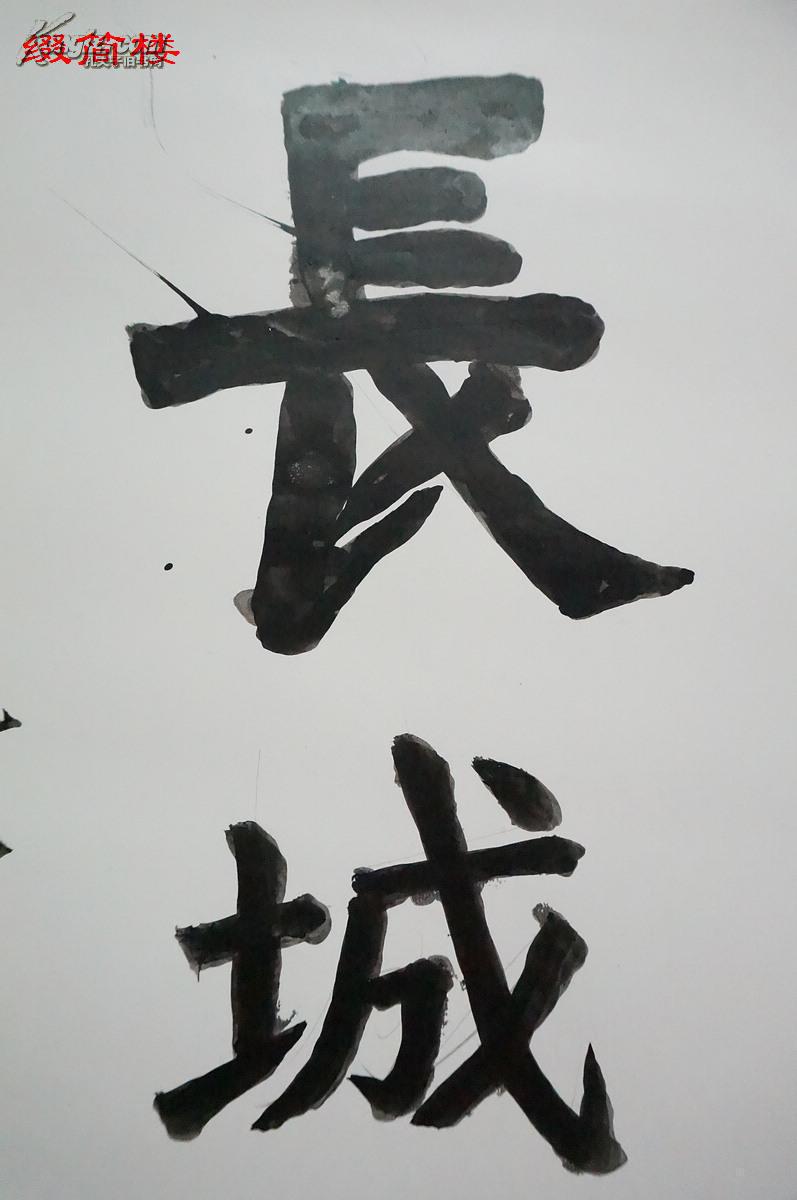 缀俻楼
長
城